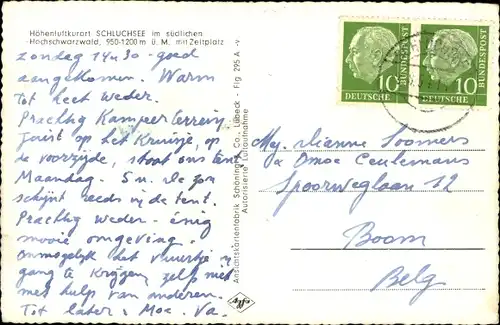 Höhenluftkurort SCHLUCHSEE im südlichen
Hochschwarzwald, 950-1200 m ü. M. mit Zeltplatz
Zondag 14u30 - goed
aangekomen. Warm
tot heet weder.
Prachtig Kampeerterrein
Juist op het kruisje, op
de voorzijde, staat ons tent
Maandag. 5 u. de zon
schijnt reeds in de tent.
Prachtig weder - enig
mooie omgeving.
Onmogelijk het vuurtje
gang te krijgen, zelfs niet
met hulp van anderen.
Tot later. Moe. Va.
Ansichtskartenfabrik Schöning & Co., Lübeck - Flg 995 A - v.
Autorisierte Luftaufnahme
10 DEUTSCHE BUNDESPOST
DEUTSCHE BUNDESPOST 10
Mej. Dianne Soomers
Ceulemans
Spoorweglaan 12
Boom
Belg